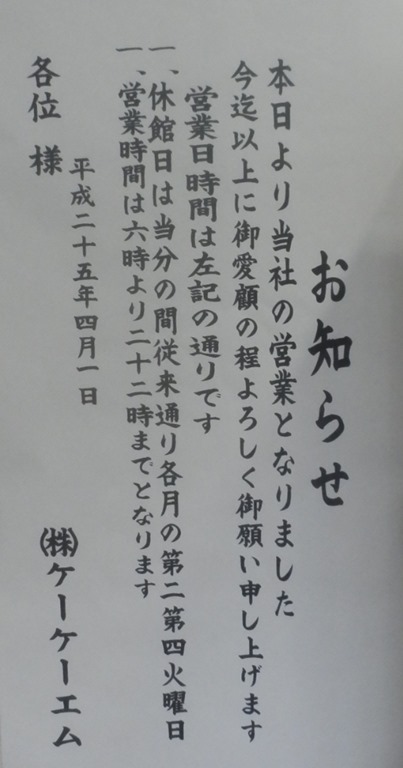 お知らせ
本日より当社の営業となりました
今迄以上に御愛顧の程よろしく御願い申し上げます
営業日時間は左記の通りです
一、休館日は当分の間従来通り各月の第二第四火曜日
一、営業時間は六時より二十二時までとなります
平成二十五年四月一日
㈱ケーケーエム
各位 様